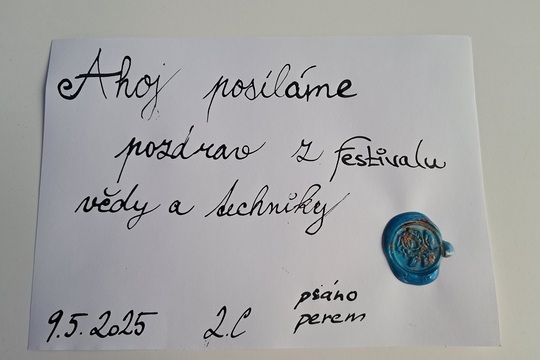 Ahoj posíláme
pozdrav z festivalu
vědy a techniky
psáno
9.5.2025 2.C perem